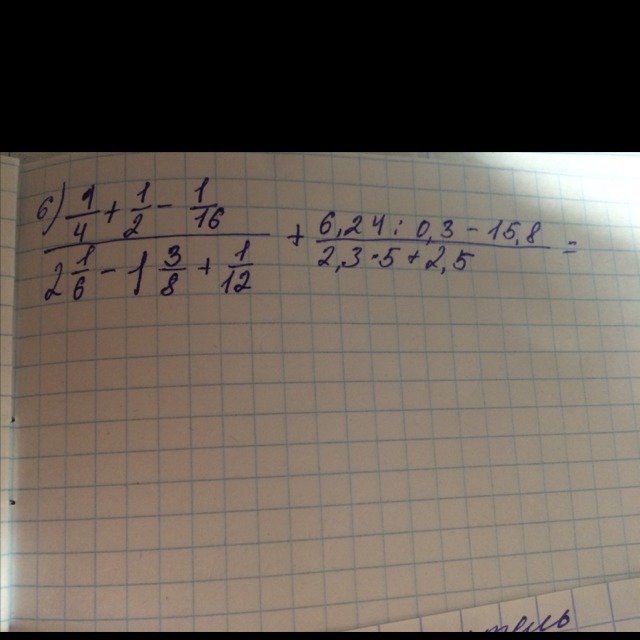 б) 1/4 + 1/2 - 1/16 / 2 1/6 - 1 3/8 + 1/12 + 6,24 : 0,3 - 15,8 / 2,3 · 5 + 2,5 =